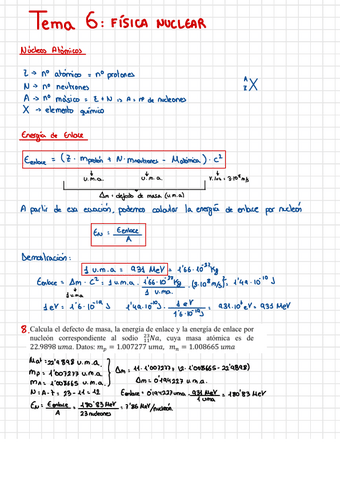 Tema 6: FÍSICA NUCLEAR
Núcleos Atómicos
Z → nº atómico = nº protones
N → nº neutrones
A → nº másico = Z + N ⇒ A = nº de nucleones
X → elemento químico
A
Z X
Energía de Enlace
Eenlace = (Z · mprotón + N · mneutrones - Matómica) · c²
u.m.a. u.m.a. V.luz = 3·10⁸ m/s
Δm = defecto de masa (u.m.a)
A partir de esa ecuación, podemos calcular la energía de enlace por nucleón
EN = Eenlace / A
Demostración:
1 u.m.a. = 931 MeV = 1'66·10⁻²⁷ Kg
Eenlace = Δm · c² = 1 u.m.a. · 1'66·10⁻²⁷ Kg / u.m.a. · (3·10⁸ m/s)² = 1'49·10⁻¹⁰ J
1 uma
1 eV = 1'6·10⁻¹⁹ J 1'49·10⁻¹⁰ J · 1 eV / 1'6·10⁻¹⁹ J = 931·10⁶ eV = 931 MeV
8. Calcula el defecto de masa, la energía de enlace y la energía de enlace por
nucleón correspondiente al sodio ²³₁₁Na, cuya masa atómica es de
22.9898 uma. Datos: mₚ = 1.007277 uma, mₙ = 1.008665 uma
Mat = 22'9898 u.m.a.
mp = 1'007277 u.m.a.
mn = 1'008665 u.m.a.
Δm = 11·1'007277 + 12·1'008665 - 22'9898)
Δm = 0'194227 u.m.a.
N = A - Z = 23 - 11 = 12
Eenlace = 0'194227 uma · 931 MeV / 1 uma = 180'83 MeV
EN = Eenlace / A = 180'83 MeV / 23 nucleones = 7'86 MeV/nucleón.